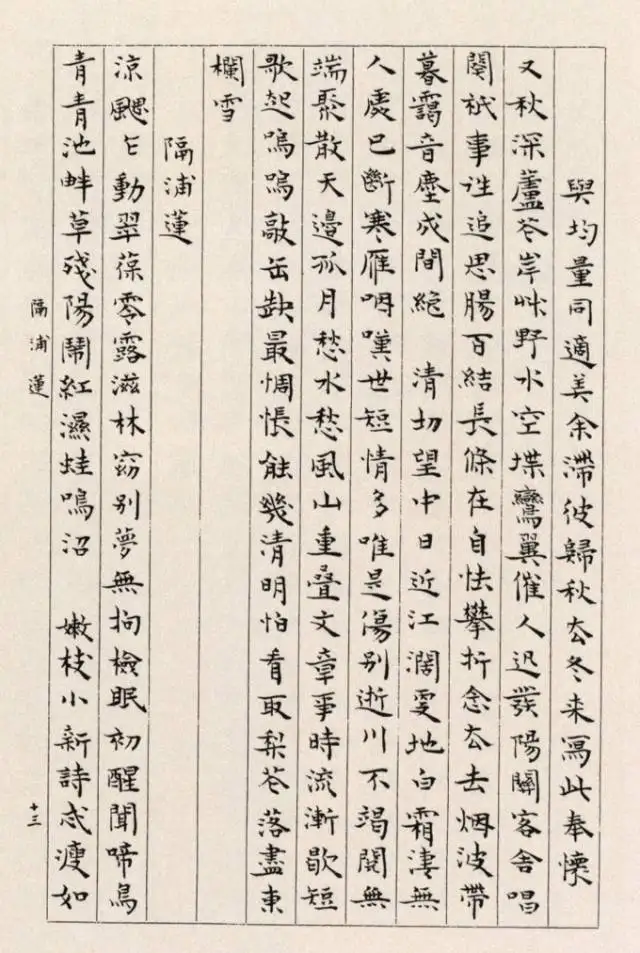 與均量同適美余滯彼歸秋去冬来寫此奉懷
又秋深蘆花岸艸野水空堞鸞翼催人迟發陽關客舍唱
闋祇事迬追思腸百結長條在自怯攀折念去去烟波帶
暮靄音塵成間絶　清切望中日近江濶雯地白霜凄無
人處已斷寒雁咽嘆世短情多唯是傷别逝川不竭閱無
端聚散天邉孤月愁水愁風山重叠文章事時流漸歇短
歌起嗚嗚敲缶缺最惆悵能幾清明怕看取梨花落盡東
欄雪
隔浦蓮
涼颸乍動翠葆零露滋林窈别夢無拘檢眠初醒聞啼鳥
青青池畔草殘陽鬧紅濕蛙鳴沼　嫩枝小新詩忒瘦如
隔浦蓮
十三